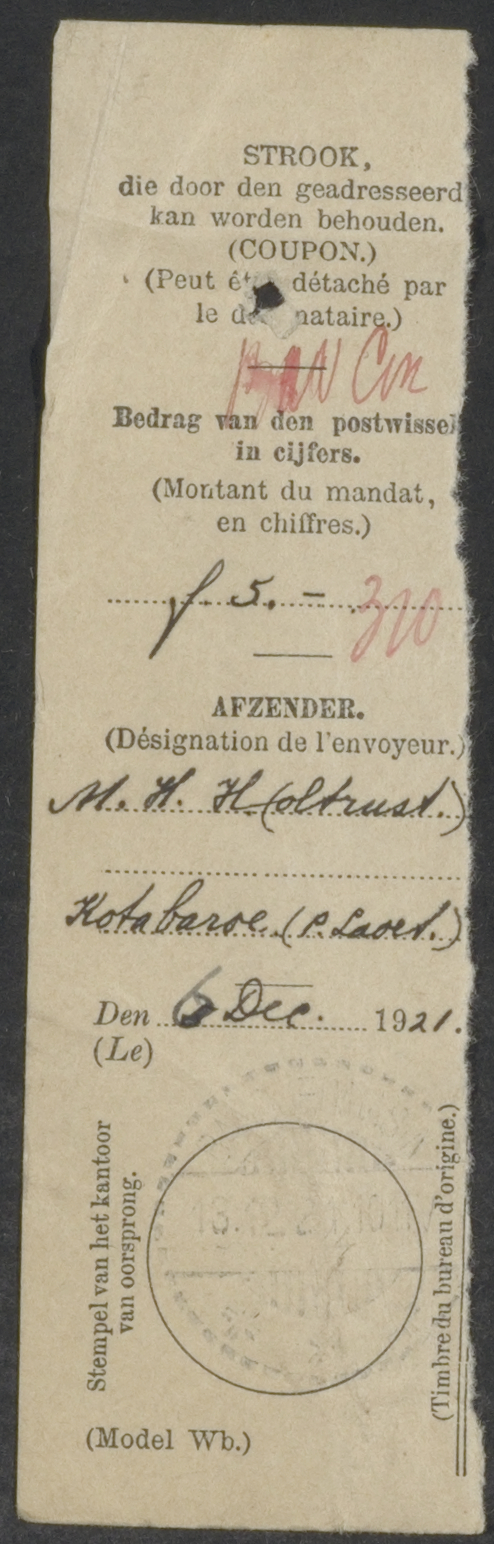 STROOK,
die door den geadresseerd
kan worden behouden.
(COUPON.)
(Peut êt détaché par
le d nataire.)
Bedrag van den postwissel
in cijfers.
(Montant du mandat,
en chiffres.)
f. 5. – 310
AFZENDER.
(Désignation de l'envoyeur.)
M. H. H(oltrust.)
Kotabaroe (P. Laoet.)
Den 6 Dec. 1921.
(Le)
Stempel van het kantoor
van oorsprong.
(Timbre du bureau d'origine.)
(Model Wb.)